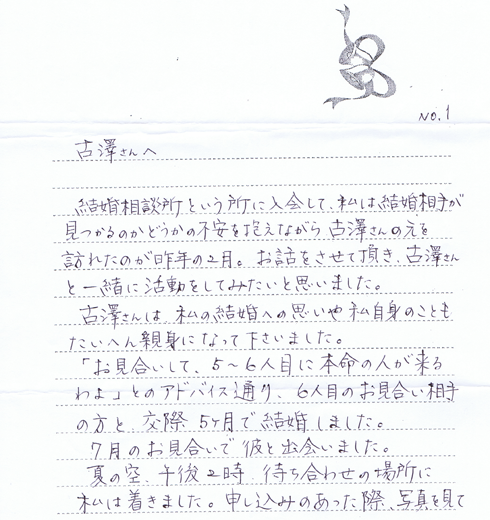 NO.1
古澤さんへ
結婚相談所という所に入会して、私は結婚相手が
見つかるのかどうかの不安を抱えながら古澤さんの元を
訪れたのが昨年の2月。お話をさせて頂き、古澤さん
と一緒に活動をしてみたいと思いました。
古澤さんは、私の結婚への思いや私自身のことも
たいへん親身になって下さいました。
「お見合いして、5〜6人目に本命の人が来る
わよ」とのアドバイス通り、6人目のお見合い相手
の方と交際5ヶ月で結婚しました。
7月のお見合いで彼と出会いました。
夏の空、午後2時、待ち合わせの場所に
私は着きました。申し込みのあった際、写真を見て